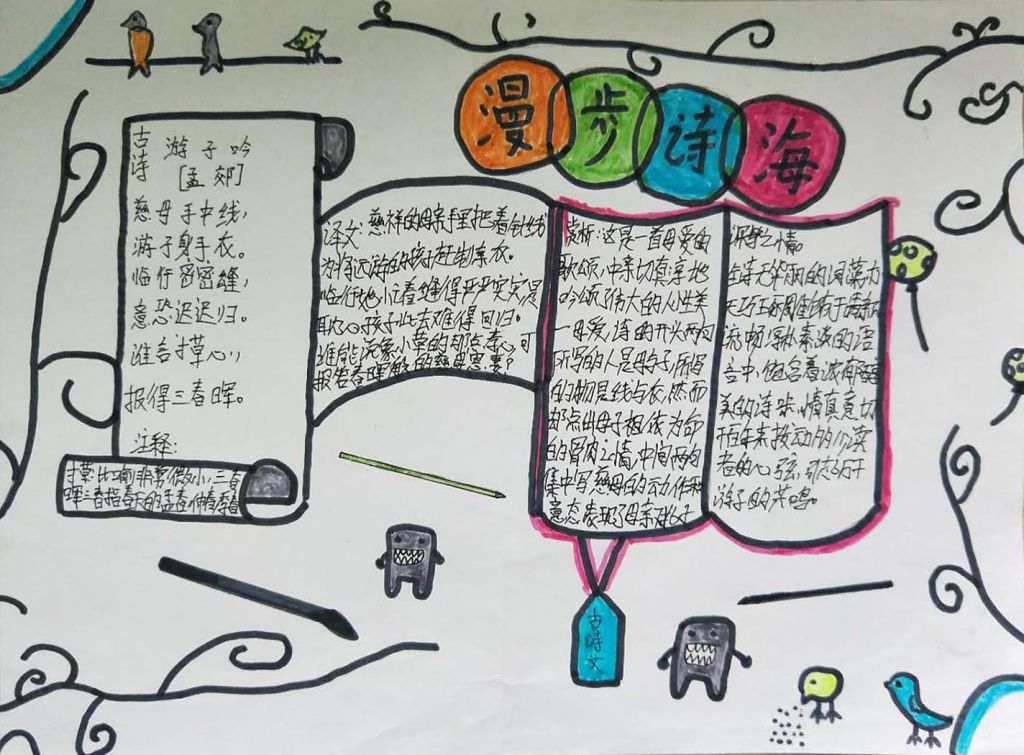 漫步诗海
古诗
游子吟
[孟郊]
慈母手中线，
游子身手衣。
临行密密缝，
意恐迟迟归。
谁言寸草心，
报得三春晖。
注释：
寸草：比喻非常微小，三春
晖：三春指春天的孟春仲春季春
译文：慈祥的母亲手里把着针线
为将远游的孩子赶制新衣。
临行她忙着缝得严严实实是
耽心孩子此去难得回归。
谁能说像小草的那点孝心可
报答春晖般的慈母恩惠？
赏析：这是一首母爱的
歌颂，中亲切真淳地
吟颂了伟大的人性美
一母爱，诗的开头两句
所写的人是母与子所写
的物是线与衣，然而
却点出母子相依为命
的骨肉之情，中间两句
集中写慈母的动作和
意态表现了母亲对
深笃之情。
流畅 朴素淡的语
言中，饱含着浓郁醇
美的诗味，情真意切
千百年来拨动多少读
者的心弦，引起万千
游子的共鸣。
古诗文